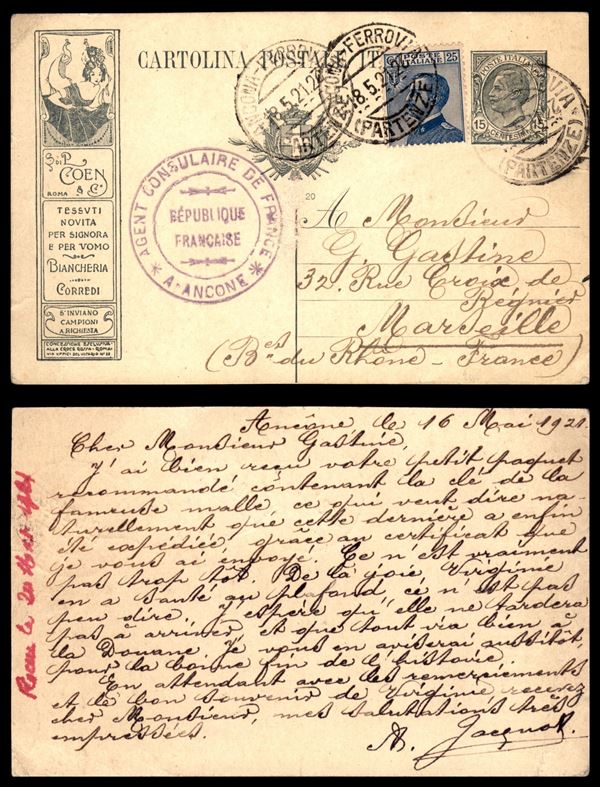 CARTOLINA POSTALE IT
ANCONA-FERROVIA
18.5.21.2
(PARTENZE)
ANCONA-FERROVIA
18.5.21.2
(PARTENZE)
POSTE
ITALIANE 25
POSTE ITALIANE
15 CENTESIMI 15
(PARTENZE)
S. di P.
COEN
& C.
ROMA
TESSVTI
NOVITA
PER SIGNORA
E PER VOMO
BIANCHERIA
CORREDI
S'INVIANO
CAMPIONI
A RICHIESTA
CONCESSIONE ESCLUSIVA
ALLA CROCE ROSSA-ROMA
VIA UFFICI DEL VICARIO Nº
AGENT CONSULAIRE DE FRANCE
RÉPUBLIQUE
FRANÇAISE
* A-ANCONE *
20
A Monsieur
G. Gastine
32. Rue Croix de
Régnier
Marseille
(Bes du Rhône - France)
Ancône le 16 Mai 1921.
Cher Monsieur Gastine,
J'ai bien reçu votre petit paquet
recommandé contenant la clé de la
fameuse malle ce qui veut dire na-
turellement que cette dernière a enfin
été expédiée grâce au certificat que
je vous ai envoyé. Ce n'est vraiment
pas trop tôt. De la joie, Virginie
en a santé au plafond, ce n'est pas
peu dire. J'espère qu'elle ne tardera
pas à arriver, et que tout via bien à
la Douane. Je vous en aviserai aussitôt,
pour la bonne fin de l'histoire.
En attendant avec les remerciements
et le bon souvenir de Virginie recevez
cher Monsieur, mes salutations très
empressées.
A. Jacquot
Reçu le 20